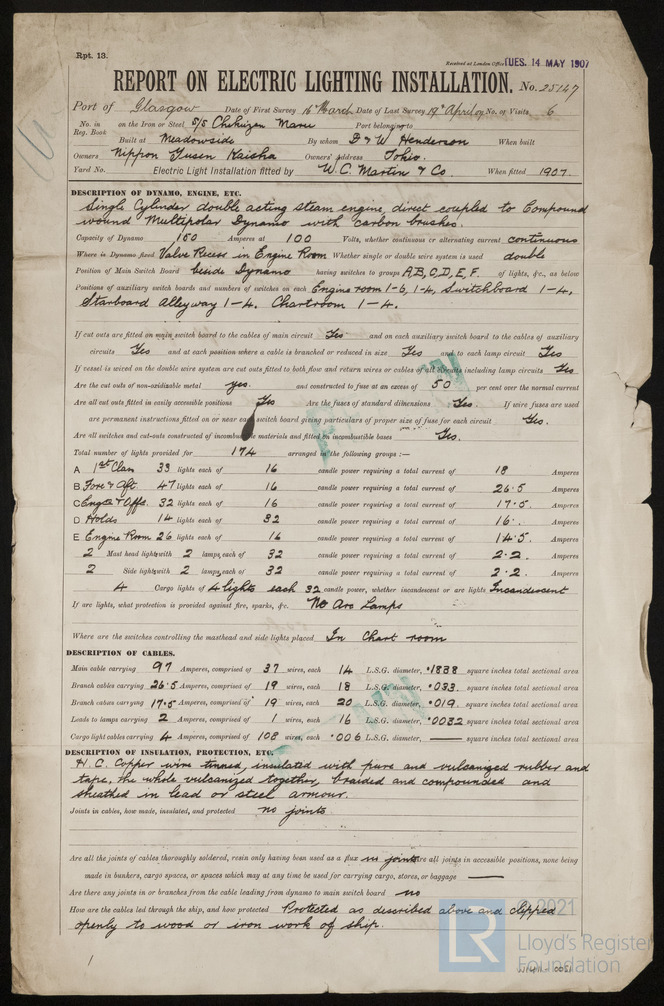 Rpt. 13.
Received at London Office TUES. 14 MAY 1907
REPORT ON ELECTRIC LIGHTING INSTALLATION. No. 25147
Port of Glasgow Date of First Survey 16th March Date of Last Survey 19th April 07 No. of Visits 6
No. in Reg. Book on the Iron or Steel S/S Chikuzen Maru Port belonging to
Built at Meadowside By whom D & W Henderson When built
Owners Nippon Yusen Kaisha Owners' Address Tokio.
Yard No. Electric Light Installation fitted by W. C. Martin & Co. When fitted 1907.
DESCRIPTION OF DYNAMO, ENGINE, ETC.
Single Cylinder double acting steam engine, direct coupled to Compound
wound Multipolar Dynamo with carbon brushes.
Capacity of Dynamo 150 Amperes at 100 Volts, whether continuous or alternating current continuous
Where is Dynamo fixed Valve Recess in Engine Room Whether single or double wire system is used double
Position of Main Switch Board beside Dynamo having switches to groups A, B, C, D, E, F. of lights, &c., as below
Positions of auxiliary switch boards and numbers of switches on each Engine room 1-6, 1-4, Switchboard 1-4,
Starboard Alleyway 1-4. Chartroom 1-4.
If cut outs are fitted on main switch board to the cables of main circuit Yes and on each auxiliary switch board to the cables of auxiliary
circuits Yes and at each position where a cable is branched or reduced in size Yes and to each lamp circuit Yes
If vessel is wired on the double wire system are cut outs fitted to both flow and return wires or cables of all circuits including lamp circuits Yes
Are the cut outs of non-oxidizable metal yes. and constructed to fuse at an excess of 50 per cent over the normal current
Are all cut outs fitted in easily accessible positions Yes Are the fuses of standard dimensions Yes. If wire fuses are used
are permanent instructions fitted on or near each switch board giving particulars of proper size of fuse for each circuit Yes.
Are all switches and cut-outs constructed of incombustible materials and fitted on incombustible bases Yes.
Total number of lights provided for 174 arranged in the following groups :—
A 1st Class 33 lights each of 16 candle power requiring a total current of 18 Amperes
B Fore & Aft 47 lights each of 16 candle power requiring a total current of 26.5 Amperes
C Engrs & Offs. 32 lights each of 16 candle power requiring a total current of 17.5 Amperes
D Holds 14 lights each of 32 candle power requiring a total current of 16. Amperes
E Engine Room 26 lights each of 16 candle power requiring a total current of 14.5. Amperes
2 Mast head light with 2 lamps each of 32 candle power requiring a total current of 2.2. Amperes
2 Side light with 2 lamps each of 32 candle power requiring a total current of 2.2. Amperes
4 Cargo lights of 4 lights each 32 candle power, whether incandescent or arc lights Incandescent
If arc lights, what protection is provided against fire, sparks, &c. No Arc Lamps
Where are the switches controlling the masthead and side lights placed In Chart room
DESCRIPTION OF CABLES.
Main cable carrying 97 Amperes, comprised of 37 wires, each 14 L.S.G. diameter, .1838 square inches total sectional area
Branch cables carrying 26.5 Amperes, comprised of 19 wires, each 18 L.S.G. diameter, .033. square inches total sectional area
Branch cables carrying 17.5 Amperes, comprised of 19 wires, each 20 L.S.G. diameter, .019. square inches total sectional area
Leads to lamps carrying 2 Amperes, comprised of 1 wires, each 16 L.S.G. diameter, .0032 square inches total sectional area
Cargo light cables carrying 4 Amperes, comprised of 108 wires, each .006 L.S.G. diameter, — square inches total sectional area
DESCRIPTION OF INSULATION, PROTECTION, ETC.
H. C. Copper wire tinned, insulated with pure and vulcanized rubber and
tape, the whole vulcanized together, braided and compounded and
sheathed in lead or steel armour.
Joints in cables, how made, insulated, and protected no joints
Are all the joints of cables thoroughly soldered, resin only having been used as a flux no joints Are all joints in accessible positions, none being
made in bunkers, cargo spaces, or spaces which may at any time be used for carrying cargo, stores, or baggage —
Are there any joints in or branches from the cable leading from dynamo to main switch board no
How are the cables led through the ship, and how protected Protected as described above and clipped
openly to wood or iron work of ship.
2021
LR
Lloyd's Register
Foundation